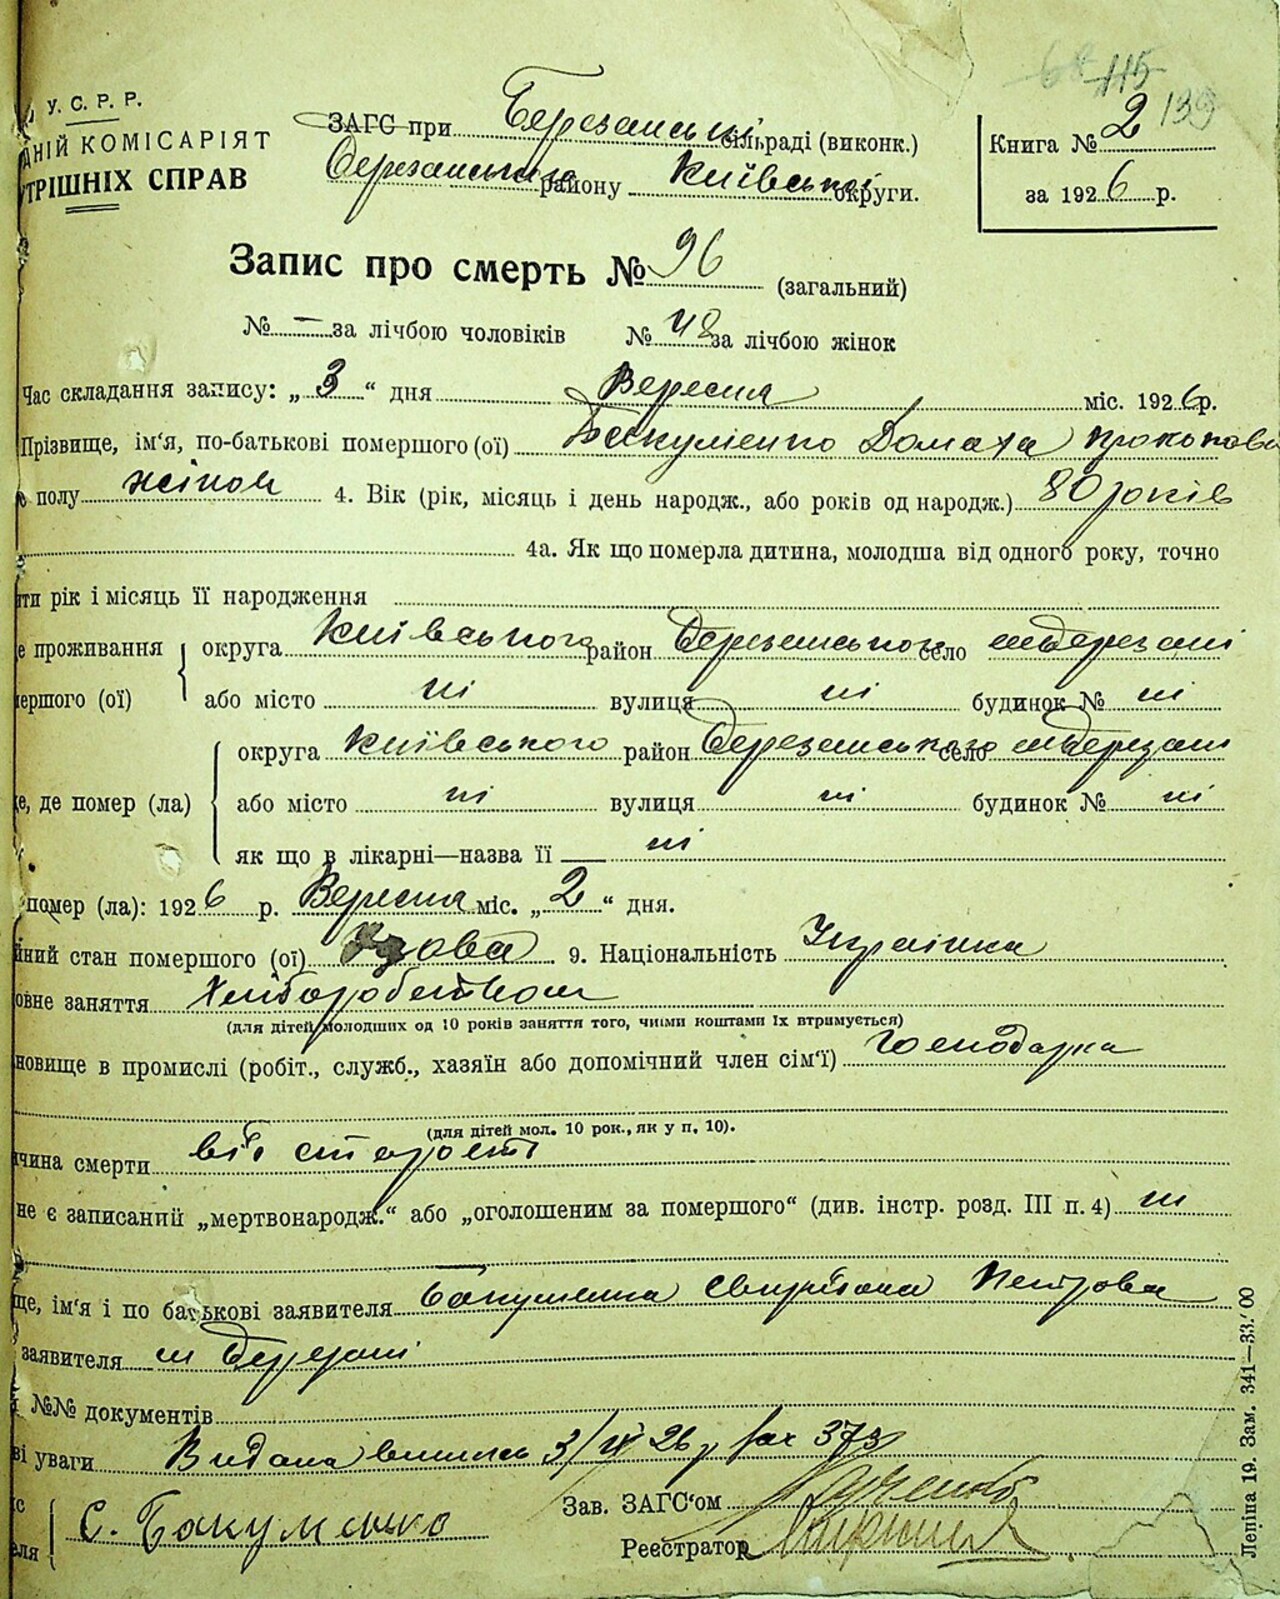 68 115 139
У. С. Р. Р.
НІЙ КОМІСАРІЯТ
ТРІШНІХ СПРАВ
ЗАГС при Березанські сільраді (виконк.)
Березанського району Київської округи.
Книга № 2
за 1926 р.
Запис про смерть № 96 (загальний)
№ — за лічбою чоловіків № 48 за лічбою жінок
Час складання запису: „ 3 “ дня Вересня міс. 1926 р.
Прізвище, ім'я, по-батькові помершого (ої) Бакуменко Домаха Прокопова
полу жіночи 4. Вік (рік, місяць і день народж., або років од народж.) 80 років
4а. Як що померла дитина, молодша від одного року, точно
ти рік і місяць її народження
е проживання округа Київського район Березанського село м Березані
мершого (ої) або місто ні вулиця ні будинок № ні
округа Київського район Березанського село м Березані
е, де помер (ла) або місто ні вулиця ні будинок № ні
як що в лікарні—назва її — ні
помер (ла): 1926 р. Вересня міс. „ 2 “ дня.
йний стан помершого (ої) Удова 9. Національність Українка
овне заняття Хліборобством
(для дітей молодших од 10 років заняття того, чиїми коштами їх втримується)
новище в промислі (робіт., служб., хазяїн або допомічний член сім'ї) Господарка
(для дітей мол. 10 рок., як у п. 10).
чина смерти від старости
не є записаний „мертвонародж.“ або „оголошеним за помершого“ (див. інстр. розд. III п. 4) ні
ще, ім'я і по батькові заявителя Бакуменко Свиридона Петрова
заявителя м Березані
№№ документів
ві уваги Видана випись 3/IX 26 р за № 373
Зав. ЗАГС'ом
С. Бакуменко
Реєстратор
Леніна 19. Зам. 341—33.'00